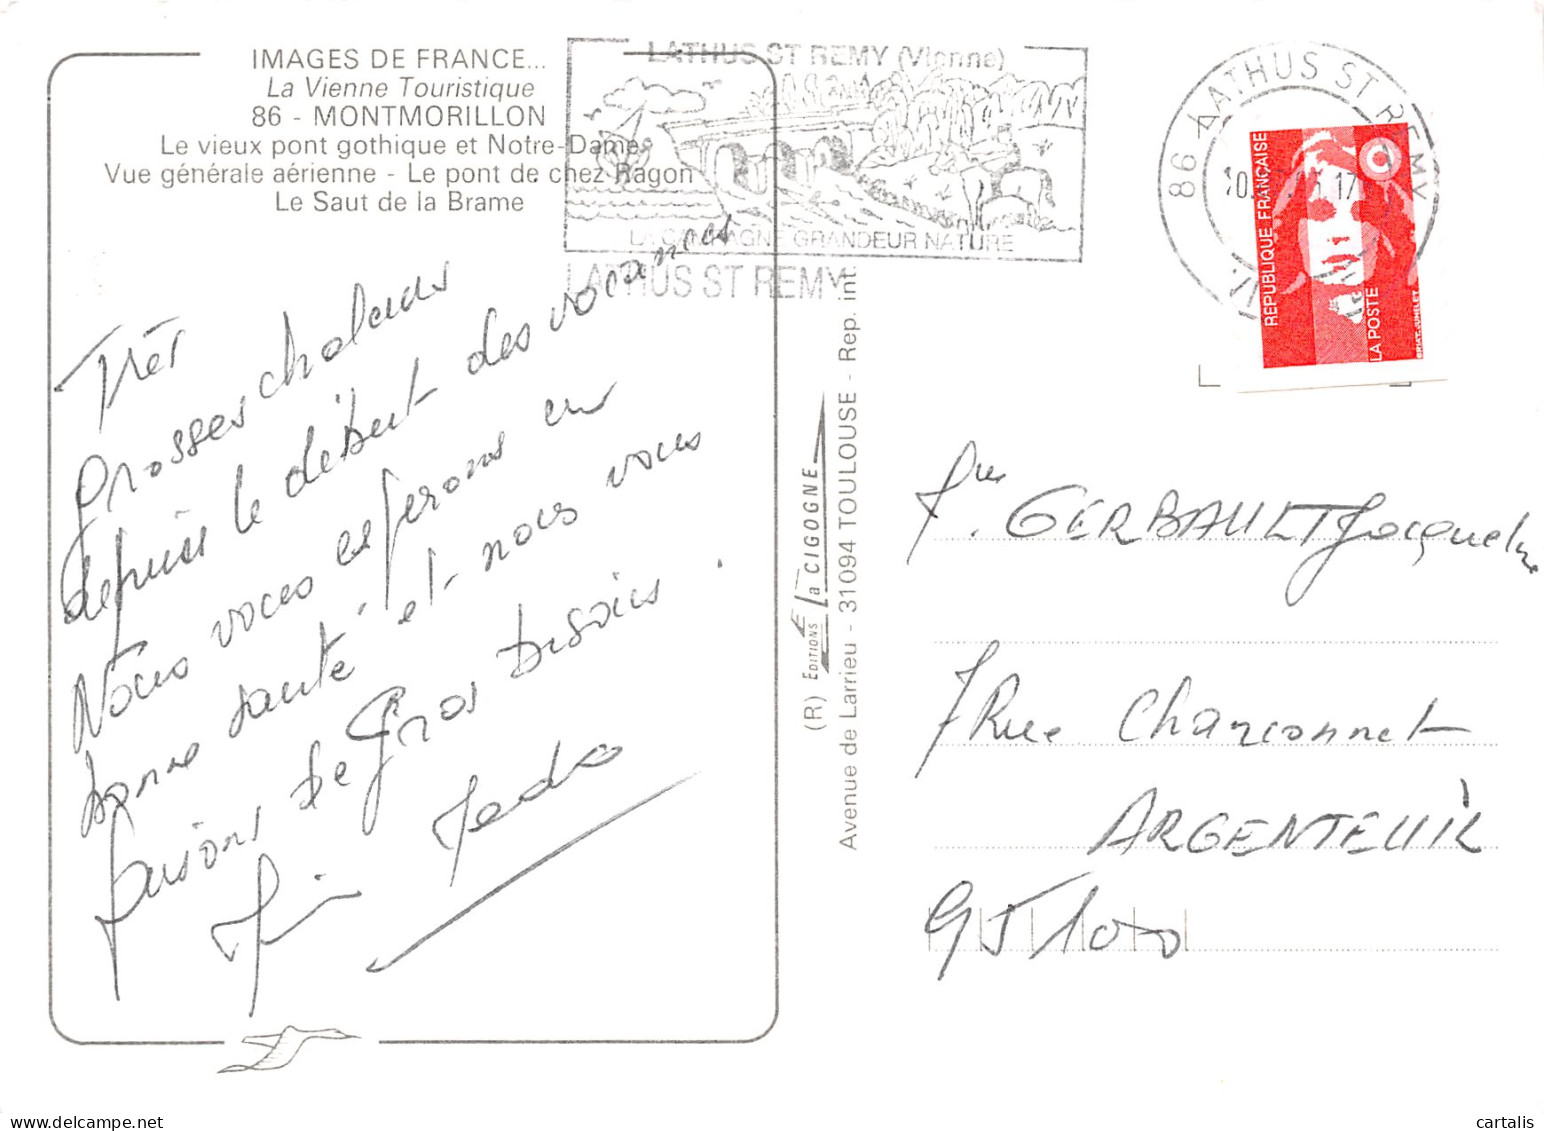 IMAGES DE FRANCE...
La Vienne Touristique
86 - MONTMORILLON
Le vieux pont gothique et Notre-Dame
Vue générale aérienne - Le pont de chez Ragon
Le Saut de la Brame
LATHUS ST REMY (Vienne)
LA CAMPAGNE GRANDEUR NATURE
LATHUS ST REMY
86 LATHUS ST REMY
17
REPUBLIQUE FRANÇAISE
LA POSTE
BRIAT-JUMELET
Très
grosses chaleurs
depuis le début des vacances
Nous vous espérons en
bonne santé et nous vous
faisons de gros Bisous.
(R) EDITIONS La CIGOGNE
Avenue de Larrieu - 31094 TOULOUSE - Rep. int.
GERBAULT Jacqueline
7 Rue Charconnet
ARGENTEUIL
95100
cartalis